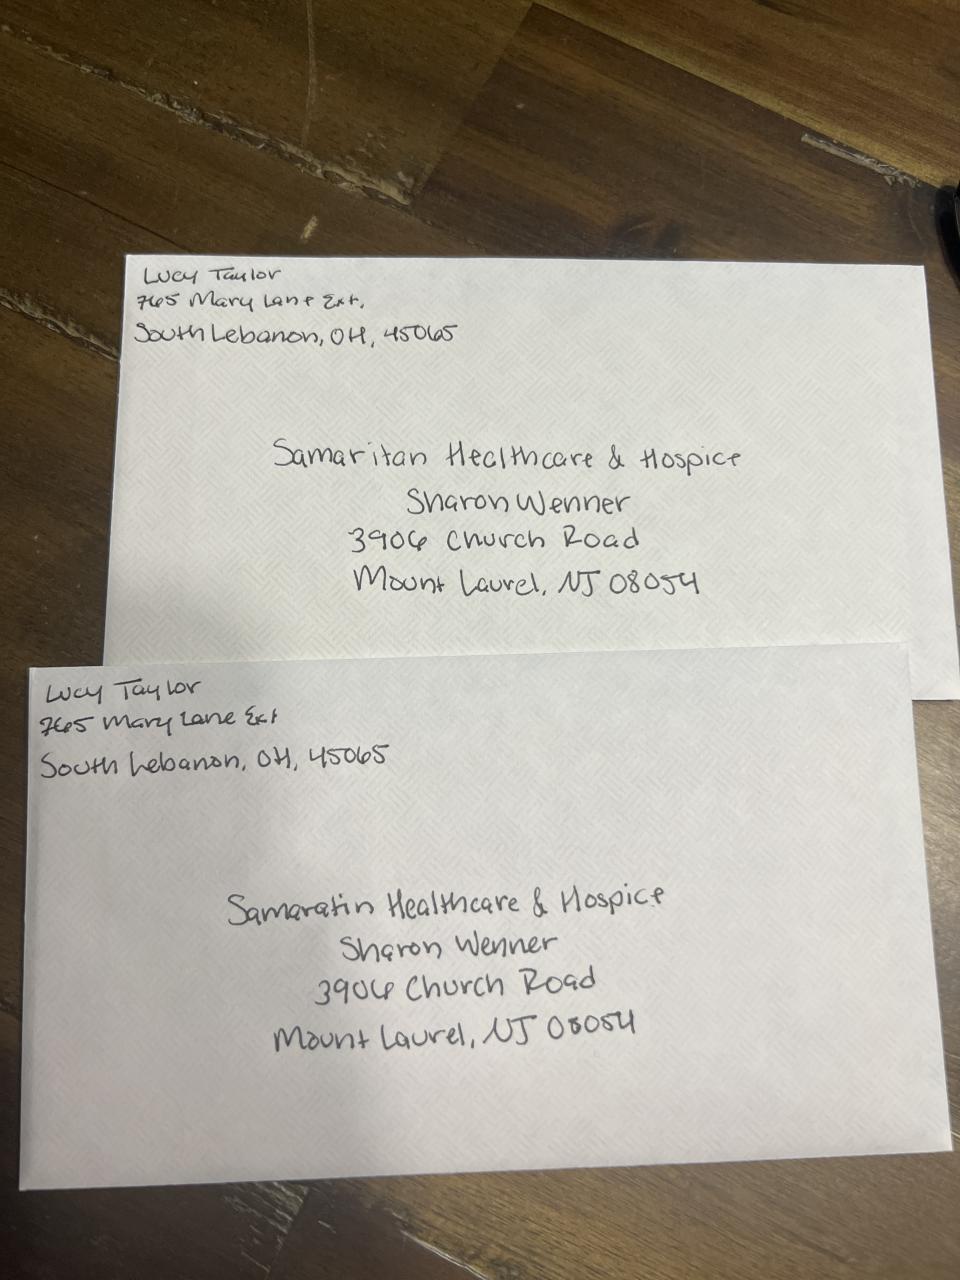 Lucy Taylor
765 Mary Lane Ext.
South Lebanon, OH, 45065
Samaritan Healthcare & Hospice
Sharon Wenner
3906 Church Road
Mount Laurel, NJ 08054
Lucy Taylor
765 Mary Lane Ext
South Lebanon, OH, 45065
Samaratin Healthcare & Hospice
Sharon Wenner
3906 Church Road
Mount Laurel, NJ 08054